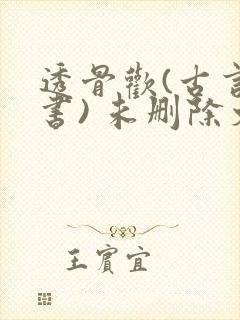 透骨歡(古言
書)未刪除文
王賓宜